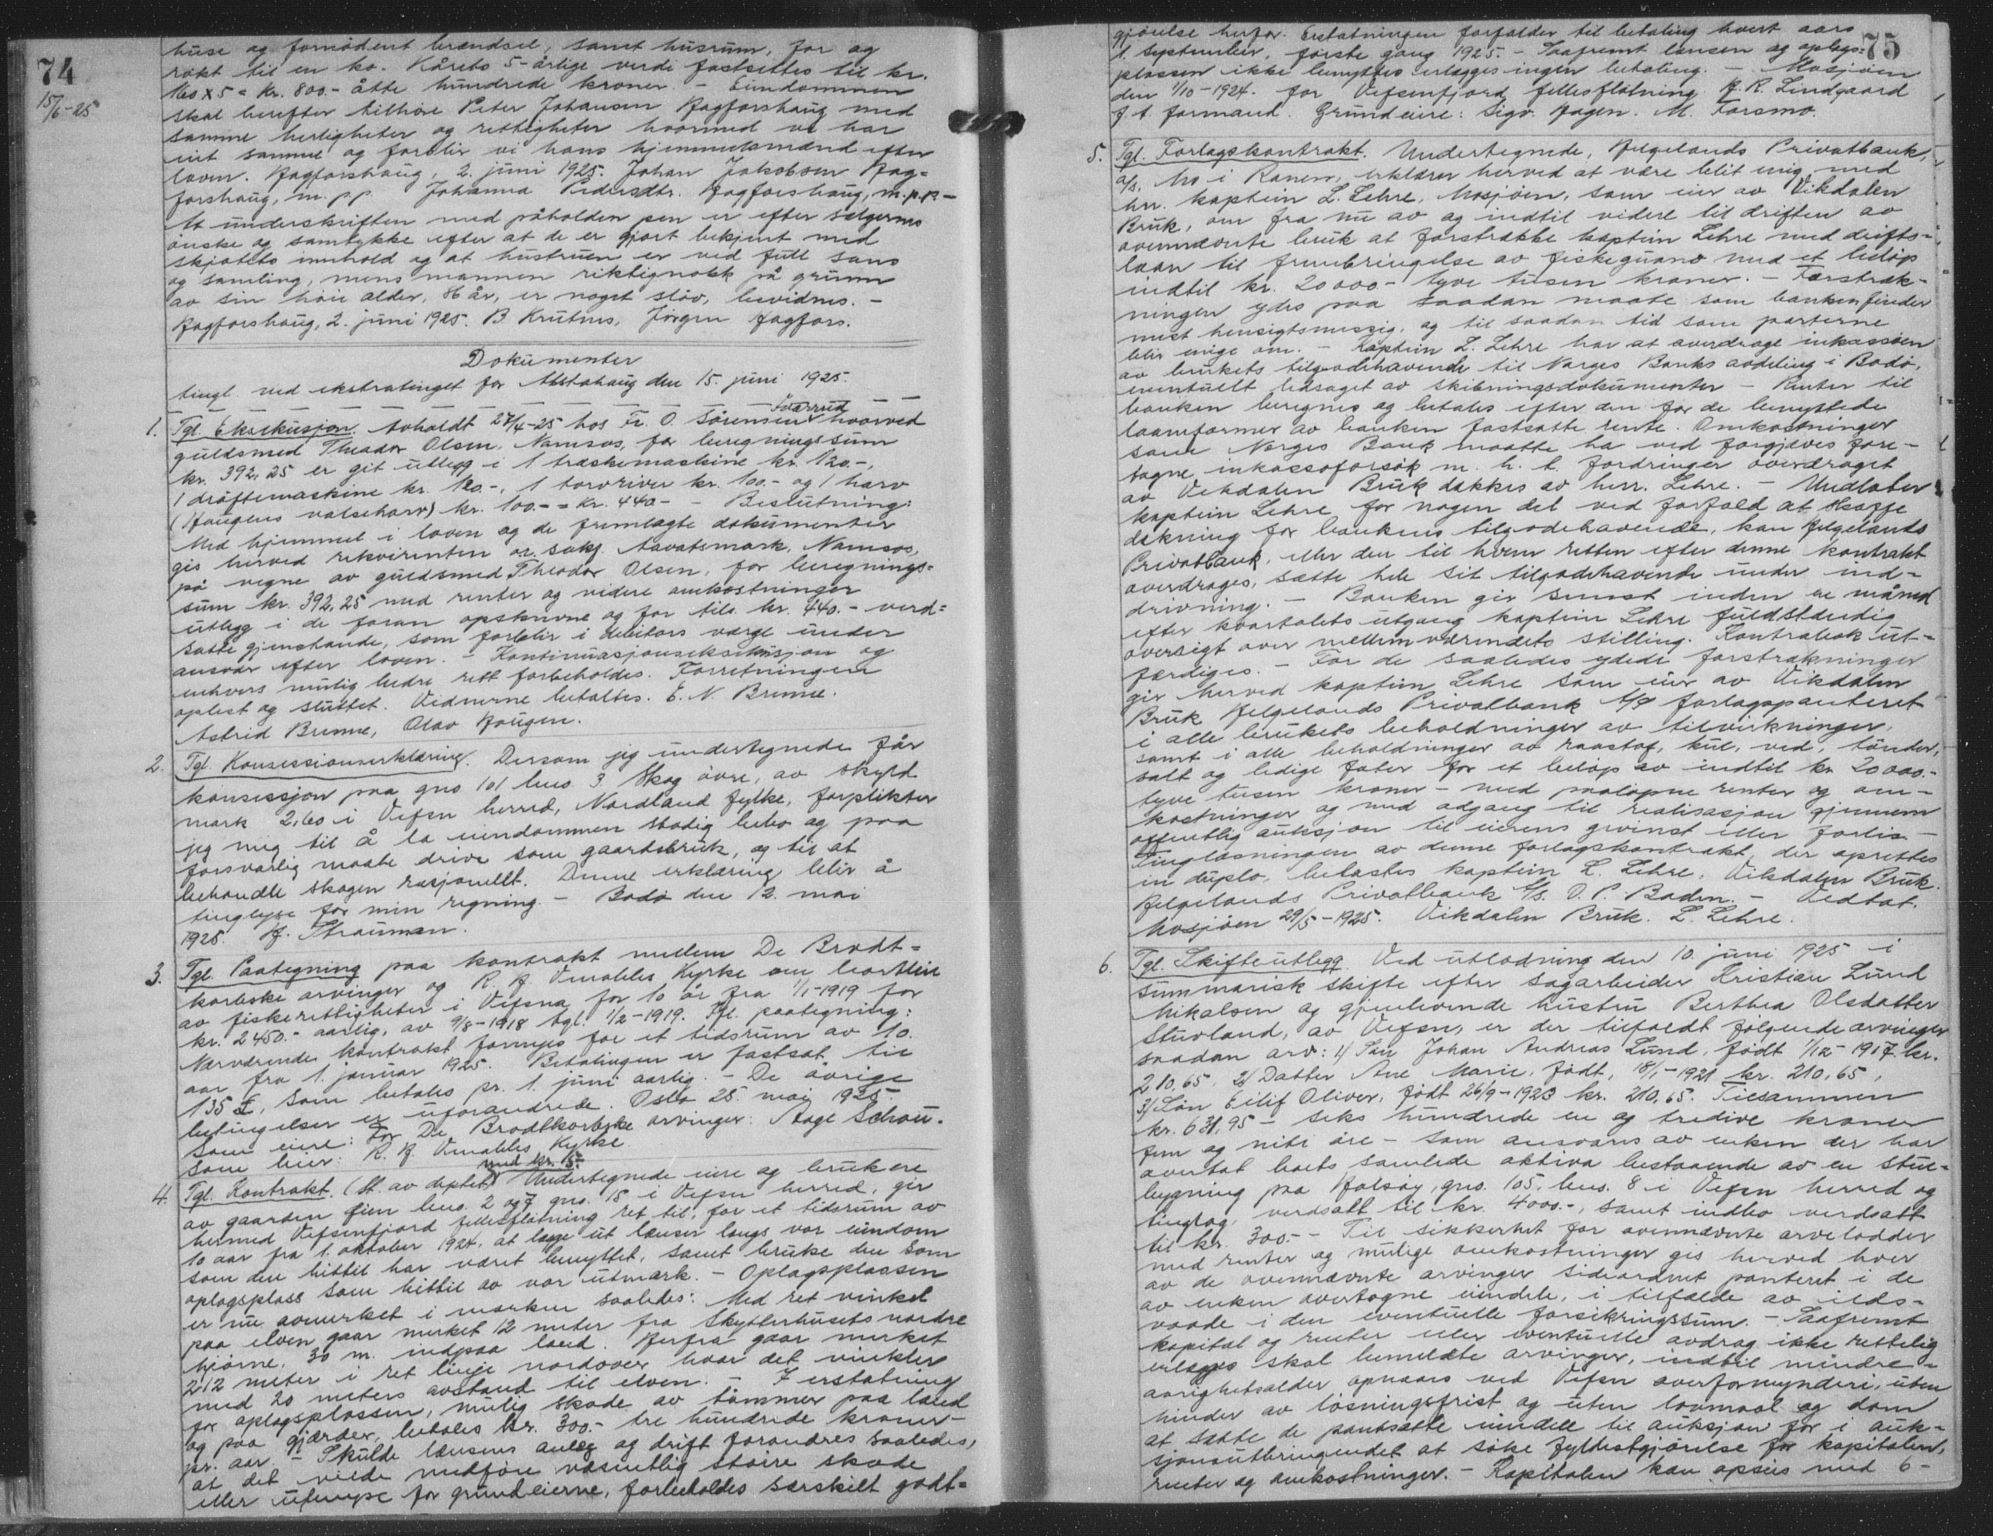 74
15/6-25
huse og fornødent brændsel, samt husrum, for og
røkt til en ko. Kårets 5-årlige verdi fastsettes til kr.
160 x 5 = kr. 800.- åtte hundrede kroner. - Eiendommen
skal herefter tilhøre Peter Johansen Fagforshaug med
samme herligheter og rettigheter hvormed vi har
eiet samme og forblir vi hans hjemmelsmænd efter
loven. Fagforshaug, 2. juni 1925. Johan Jakobsen Fag-
forshaug, m.p.p. Johanna Pedersdtr. Fagforshaug, m.p.p. -
At underskriften med påholden pen er efter selgernes
ønske og samtykke efter at de er gjort bekjent med
skjøtets innhold og at hustruen er ved full sans
og samling, mens mannen riktignokk på grunn
av sin høie alder, 86 år, er noget sløv, bevidnes. -
Fagforshaug, 2. juni 1925. B Krutnes, Jørgen Fagfors.
Dokumenter
tingl. ved ekstratinget for Alstahaug den 15. juni 1925.
1. Tgl. Eksekusjon. Avholdt 27/4-25 hos Fr. O. Sørensen hvorved
guldsmed Theodor Olsen, Namsos, for beregningssum
kr. 392,25 er git utlegg i 1 træskemaskine kr. 120.-,
1 drøftemaskine kr. 120.-, 1 torvriver kr. 100.- og 1 harv
(Haugens valseharv) kr. 100.- = kr. 440.- - Beslutning:
Med hjemmel i loven og de fremlagte dokumenter
gis herved rekvirenten o.r. sakf. Aavatsmark, Namsos,
på vegne av guldsmed Theodor Olsen, for beregnings-
sum kr. 392,25 med renter og videre omkostninger
utlegg i de foran opskrevne og for tils. kr. 440.- verd-
satte gjenstande, som forblir i debitors værge under
ansvar efter loven. - Kontinuasjonseksekusjon og
enhvers mulig bedre rett forbeholdes. Forretningen
oplest og sluttet. Vidnerne betaltes. E. N. Brenne.
Astrid Brenne, Olav Haugen.
2. Tgl. Konsessionserklæring. Dersom jeg undertegnede får
konsesjon paa gno 101 bno 3 Skog øvre, av skyld
mark 2,60 i Vefsn herred, Nordland fylke, forplikter
jeg mig til å la eiendommen stadig bebo og paa
forsvarlig maate drive som gaardsbruk, og til at
behandle skogen rasjonellt. Denne erklæring blir å
tinglyse for min regning - Bodø den 12. mai
1925. H. Strauman.
3. Tgl. Paategning paa kontrakt mellem De Brodt-
korbske arvinger og R. H. Venables Kyrke om bortleie
av fiskerettigheter i Vefsna for 10 år fra 1/1-1919 for
kr. 2450.- aarlig, av 9/8-1918 tgl. 1/2-1919. Tgl. paategning:
Nærværende kontrakt fornyes for et tidsrum av 10
aar fra 1. januar 1925. Betalingen er fastsat til
135 £, som betales pr. 1. juni aarlig. - De øvrige
betingelser er uforandrede. Oslo 25. mai 1925.
Som eiere: For De Brodtkorbske arvinger: Aage Schou.
Som leier: R. H. Venables Kyrke
4. Tgl. Kontrakt. (St. av deptet med kr. 15.-) Undertegnede eiere og brukere
av gaarden bno. 2 og 7 gno. 15 i Vefsn herred, gir
hermed Vefsenfjord fellesfløtning ret til, for et tidsrum av
10 aar fra 1. oktober 1924, at lægge ut lænser langs vor eiendom
som den hittil har været benyttet, samt bruke den som
oplagsplass som hittil av vor utmark. - Oplagsplassen
er nu avmerket i marken saaledes: Med ret vinkel
paa elven gaar merket 12 meter fra Skytterhusets nordre
hjørne, 30 m. indpaa land. Herfra gaar merket
212 meter i ret linje nordover hvor det vinkler
med 20 meters avstand til elven. - I erstatning
for oplagsplassen, mulig skade av tømmer paa land
og paa gjærder, betales kr. 300.- tre hundrede kroner -
pr. aar. - Skulde lænsens anlæg og drift forandres saaledes,
at det vilde medføre væsentlig større skade
eller ulempe for grundeierne, forbeholdes særskilt godt-
75
gjørelse herfor. Erstatningen forfalder til betaling hvert aars
1. september, første gang 1925. - Saafremt lænsen og oplags-
plassen ikke benyttes erlægges ingen betaling. - Mosjøen
den 1/10-1924. for Vefsenfjord fellesfløtning H. R. Lindgaard
f. t. formand. Grundeiere: Sigv. Hagen. M. Forsmo.
5. Tgl. Forlagskontrakt. Undertegnede, Helgelands Privatbank,
a/s. Mo i Ranen, erklærer herved at være blit enig med
hrr. kaptein L. Lehre, Mosjøen, som eier av Vikdalen
Bruk, om fra nu av og indtil videre til driften av
ovennævnte bruk at forstrække kaptein Lehre med drifts-
laan til frembringelse av fiskeguano med et beløp
indtil kr. 20 000.- tyve tusen kroner. - Forstræk-
ningen ydes paa saadan maate som banken finder
mest hensigtsmessig, og til saadan tid som parterne
blir enige om. - Kaptein L. Lehre har at overdrage inkassoen
av brukets tilgodehavende til Norges Banks avdeling i Bodø,
eventuellt ledsaget av skibningsdokumenter - Renter til
banken beregnes og betales efter den for de benyttede
laaneformer av banken fastsatte rente. Omkostninger
som Norges Bank maatte ha ved forgjæves fore-
tagne inkassoforsøk m. h. t. fordringer overdraget
av Vikdalen Bruk dækkes av herr. Lehre. - Undlater
kaptein Lehre for nogen del ved forfald at skaffe
dækning for bankens tilgodehavende, kan Helgelands
Privatbank, eller den til hvem retten efter denne kontrakt
overdrages, sætte hele sit tilgodehavende under ind-
drivning. - Banken gir senest inden en måned
efter kvartalets utgang kaptein Lehre fuldstændig
oversigt over mellemværendets stilling. Kontrabok ut-
færdiges. - For de saaledes ydede forstrækninger
gir herved kaptein Lehre som eier av Vikdalen
Bruk Helgelands Privatbank A/S forlagspanteret
i alle brukets beholdninger av tilvirkninger,
samt i alle beholdninger av raastof, kul, ved, tønder,
salt og ledige fater for et beløp av indtil kr 20 000.-
tyve tusen kroner - med paaløpne renter og om-
kostninger og med adgang til realisasjon gjennem
offentlig auksjon til eierens gevinst eller forlis -
Tinglæsningen av denne forlagskontrakt, der oprettes
in duplo, bekostes kaptein L. Lehre, Vikdalen Bruk.
Helgelands Privatbank A/S. O. P. Baden. - Vedtat.
Mosjøen 29/5-1925. Vikdalen Bruk. L. Lehre.
6. Tgl. Skifteutlegg. Ved utlodning den 10. juni 1925 i
summarisk skifte efter sagarbeider Kristian Lund
Nikolsen og gjenlevende hustru Berthea Olsdatter
Stuvland, av Vefsn, er der tilfaldt følgende arvinger
saadan arv: 1/ Søn Johan Andreas Lund, født 1/12-1917 kr.
210,65, 2/ Datter Ane Marie, født, 18/1-1921 kr. 210,65,
3/ Søn Eilif Oliver, født 26/9-1923 kr. 210,65. Tilsammen
kr. 631,95 - seks hundrede en og tredive kroner
fem og nitti øre - som ansvares av enken der har
overtat boets samlede aktiva bestaaende av en stue-
bygning paa Halsøy, gno. 105. bno. 8 i Vefsn herred og
tinglag, verdsatt til kr. 4000.-, samt indbo verdsatt
til kr. 300.- - Til sikkerhet for ovennævnte arvelodder
med renter og mulige omkostninger gis herved hver
av de ovennævnte arvinger sideordnet panteret i de
av enken overtagne eiendele, i tilfælde av ilds-
vaade i den eventuelle forsikringssum. - Saafremt
kapital og renter eller eventuelle avdrag ikke rettelig
erlægges skal bemeldte arvinger, indtil mindre-
aarighetsalder opnaaes ved Vefsn overformynderi, uten
hinder av løsningsfrist og uten lovmaal og dom
at sætte de pantsatte eiendele til auksjon for i auk-
sjonsutbringendet at søke fyldestgjørelse for kapitalen,
renter og omkostninger. - Kapitalen kan opsies med 6-